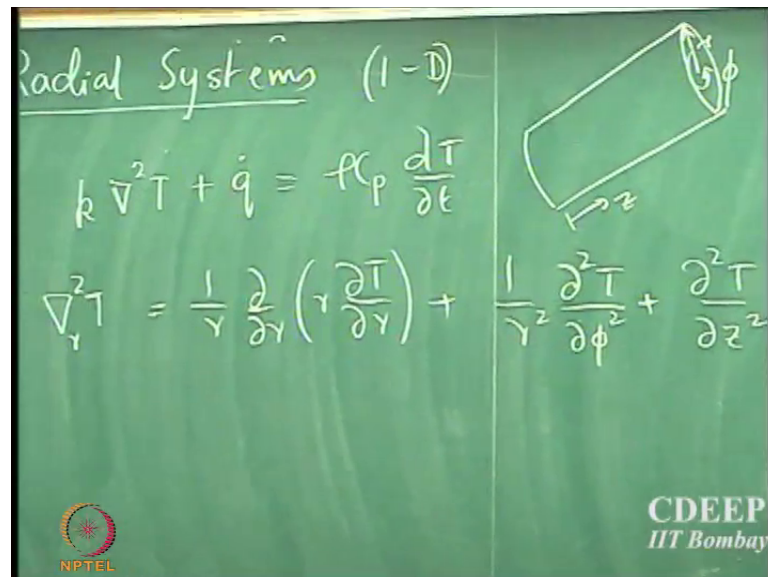 Radial Systems (1-D)
k ∇²T + q̇ = ρCp ∂T/∂t
r
φ
z
∇r²T = 1/r ∂/∂r (r ∂T/∂r) + 1/r² ∂²T/∂φ² + ∂²T/∂z²
NPTEL
CDEEP
IIT Bombay